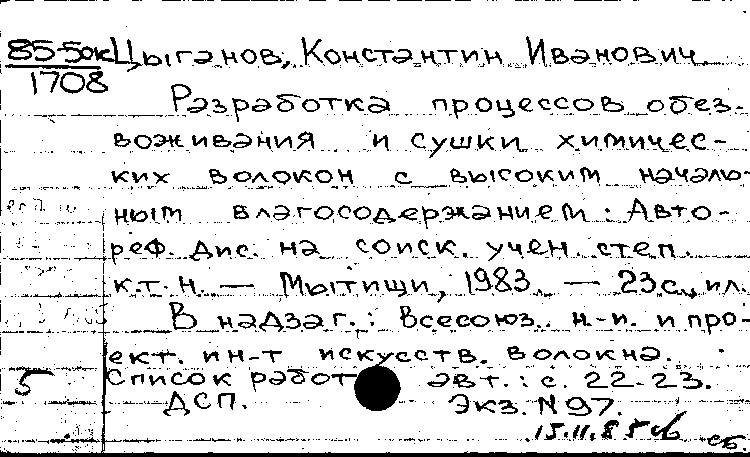 85-5ок Цыганов, Константин Иванович
1708
Разработка процессов обез-
воживания и сушки химичес-
ких волокон с высоким началь-
ным влагосодержанием: Авто-
реф. дис. на соиск. учен. степ.
к.т.н. — Мытищи, 1983. — 23с., ил.
В надзаг.: Всесоюз. н.-и. и про-
ект. ин-т искусств. волокна.
5 Список работ авт.: с. 22-23.
ДСП. Экз. N 97.
15.11.85
сб.